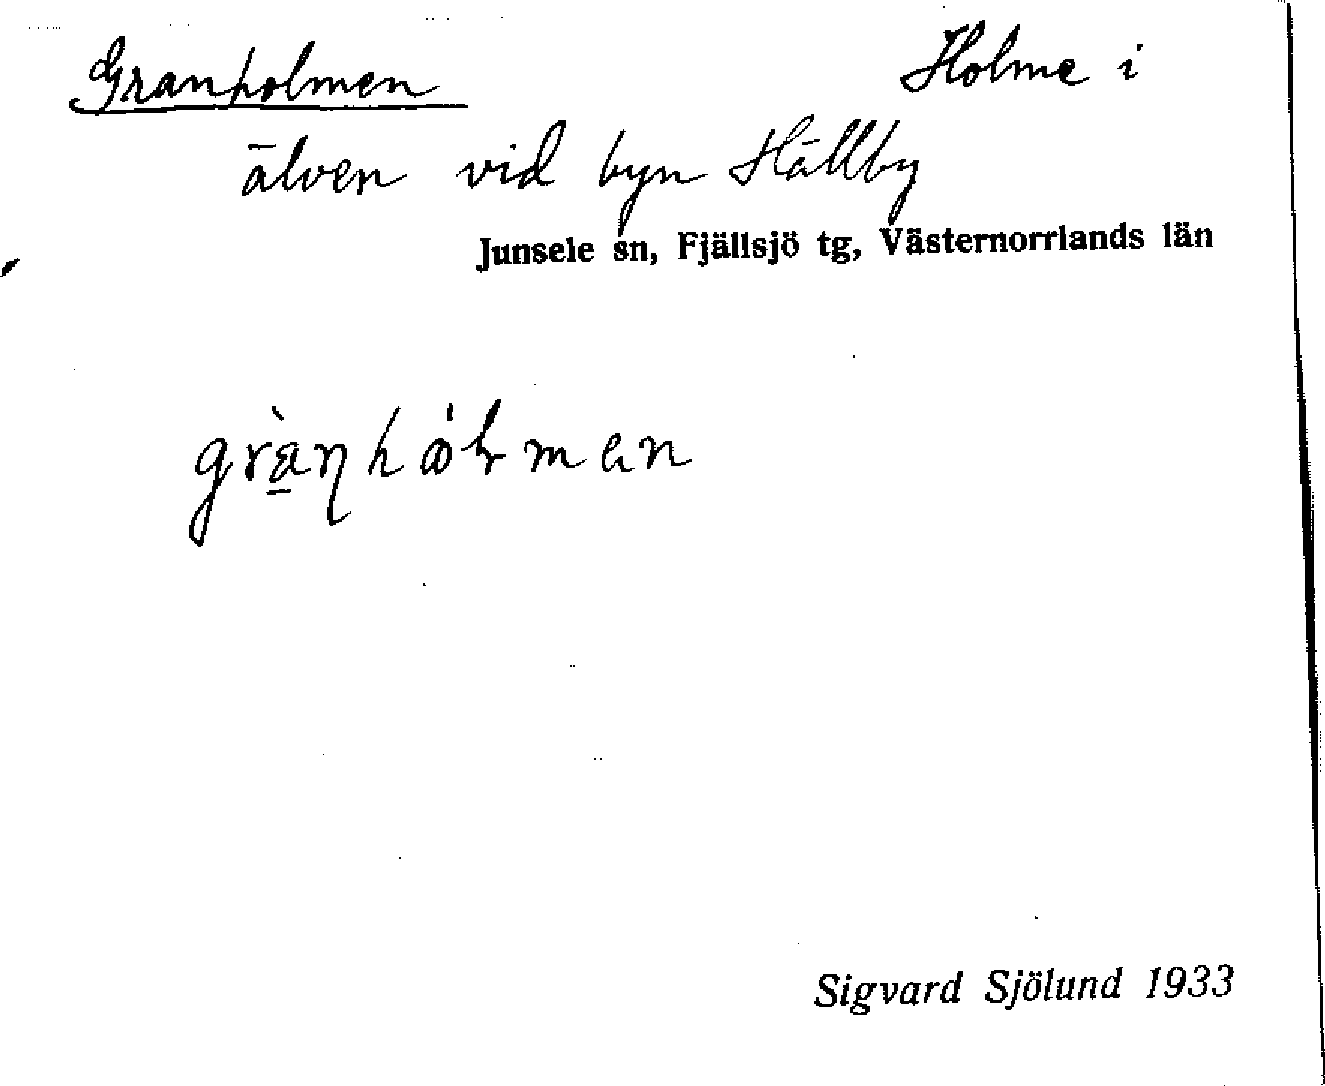 Granholmen Holme i
älven vid byn Hällby
Junsele sn, Fjällsjö tg, Västernorrlands län
Sigvard Sjölund 1933